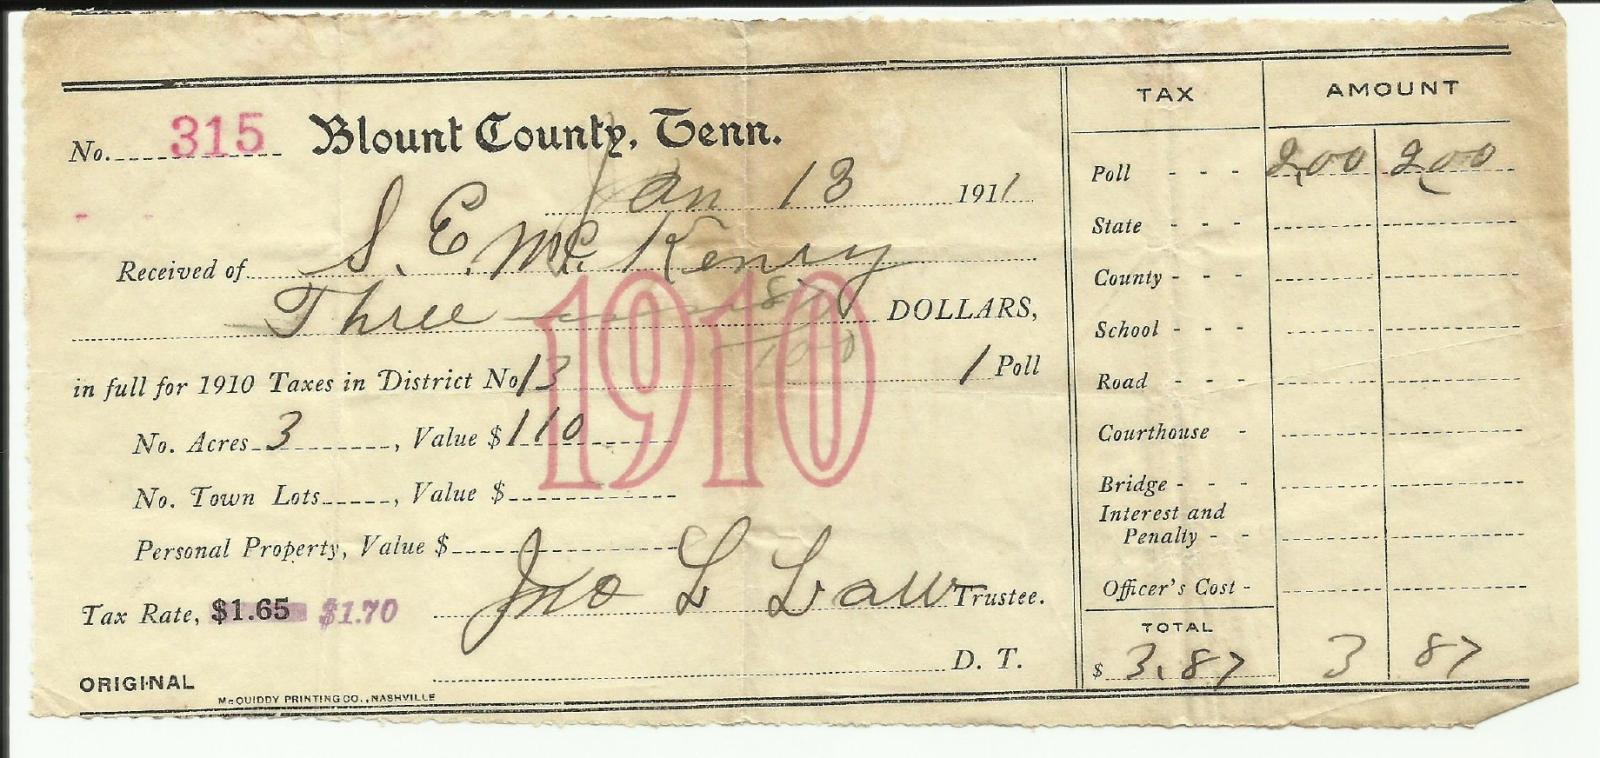 No. 315 Blount County, Tenn.
Jan 13 1911
Received of S. E. McKenry
Three 87/100 DOLLARS,
in full for 1910 Taxes in District No 13 1 Poll
No. Acres 3, Value $110
No. Town Lots, Value $
Personal Property, Value $
Tax Rate, $1.65 $1.70 Jno L Law Trustee.
D. T.
ORIGINAL
McQUIDDY PRINTING CO., NASHVILLE
1910
TAX AMOUNT
Poll - - - 2,00 2,00
State - - -
County - - -
School - - -
Road - - -
Courthouse -
Bridge - - -
Interest and
Penalty - -
Officer's Cost -
TOTAL
$ 3.87 3 87